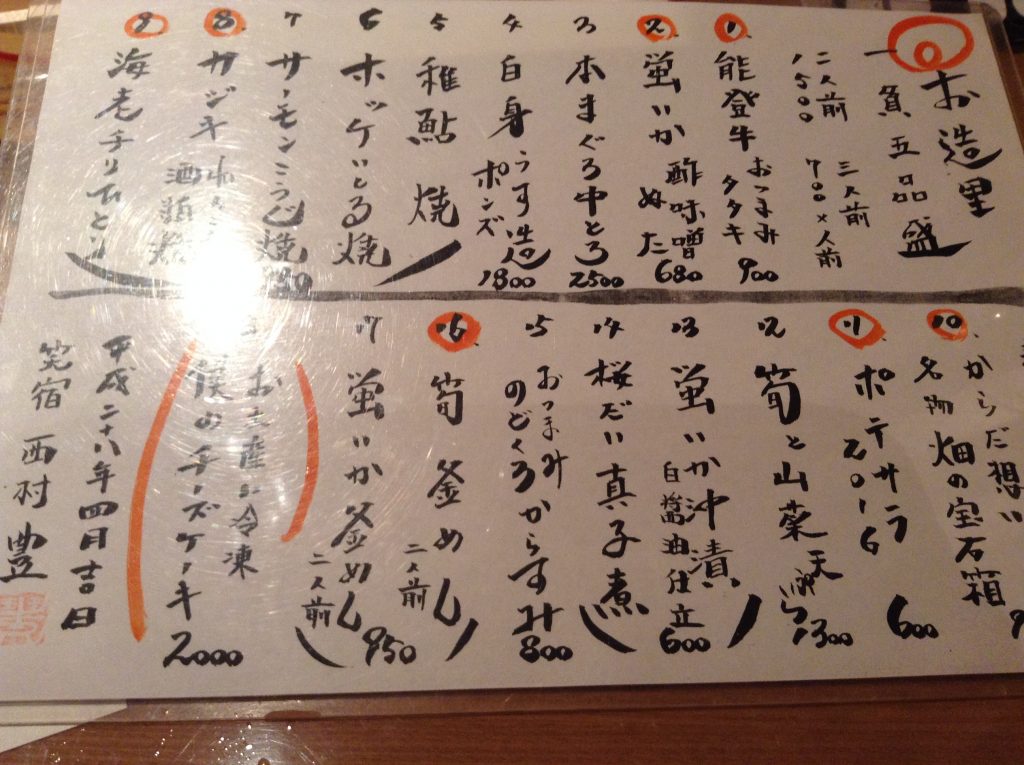 お造里
一負五品盛
二人前 三人前
1500 700×人前
1 能登牛 おつまみ
タタキ 900
2 蛍いか 酢味噌
ぬた 680
3 本まぐろ中とろ 2500
4 白身うす造
ポンズ 1800
5 稚鮎 焼
6 ホッケとろ焼
7 サーモンこうじ焼
8 カジキ
酒
9 海老チリひとり
10 からだ想い
名物 畑の宝石箱
11 ポテサラ
2016 600
12 筍と山菜天
1300
13 蛍いか沖漬
白醤油仕立 600
14 桜だい真子煮
15 おつまみ
のどくろからすみ 800
16 筍 釜めし
二人前
17 蛍いか釜めし
二人前 950
お土産に冷凍
僕のチーズケーキ 2000
平成二十八年四月吉日
笑宿 西村 豊